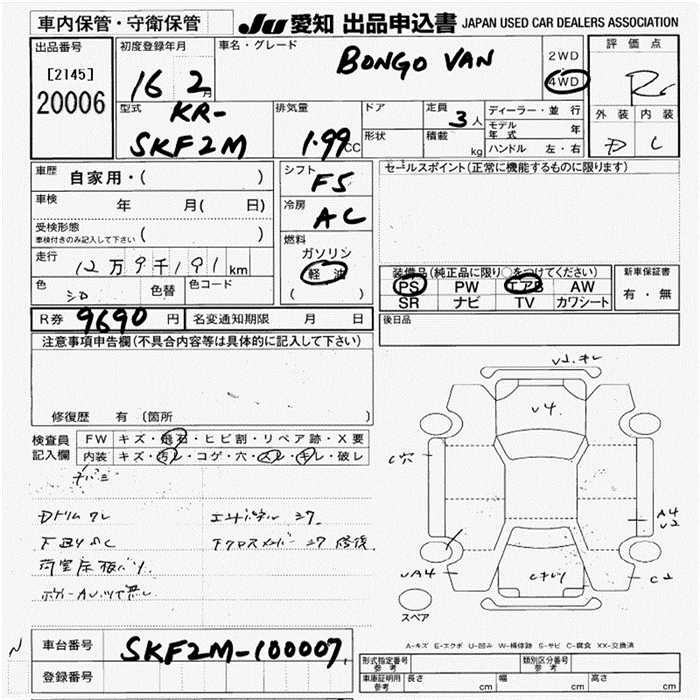 車内保管・守衛保管
JU 愛知 出品申込書 JAPAN USED CAR DEALERS ASSOCIATION
出品番号
[2145]
20006
初度登録年月
16 2月
車名・グレード
BONGO VAN
2WD
4WD
評価点
R
外装 内装
D C
型式
KR-
SKF2M
排気量
1.99 CC
ドア
形状
定員 3人
積載 kg
ディーラー・並行
モデル年式 年
ハンドル 左・右
車歴 自家用・( )
車検 年 月( 日)
受検形態
車検付きのみ記入して下さい ( )
走行 12万9千191km
色 シロ 色替 色コード
シフト F5
冷房 AC
燃料
ガソリン
軽油
( )
セールスポイント(正常に機能するものに限ります)
装備品(純正品に限り○をつけてください)
PS PW エアB AW
SR ナビ TV カワシート
新車保証書
有・無
R券 9690円 名変通知期限 月 日
後日品
注意事項申告欄(不具合内容等は具体的に記入して下さい)
修復歴 有 (箇所
検査員
記入欄
FW キズ・飛石・ヒビ割・リペア跡・X要
内装 キズ・汚レ・コゲ・穴・スレ・キレ・破レ
V4
C穴
A4
V2
UA4
C2
スペア
A-キズ E-エクボ U-凹み W-補修跡 S-サビ C-腐食 XX-交換済
車台番号 SKF2M-100007
登録番号
形式指定番号
参考
類別区分番号
参考
車庫証明用
参考
長さ cm 幅 cm 高さ cm
N